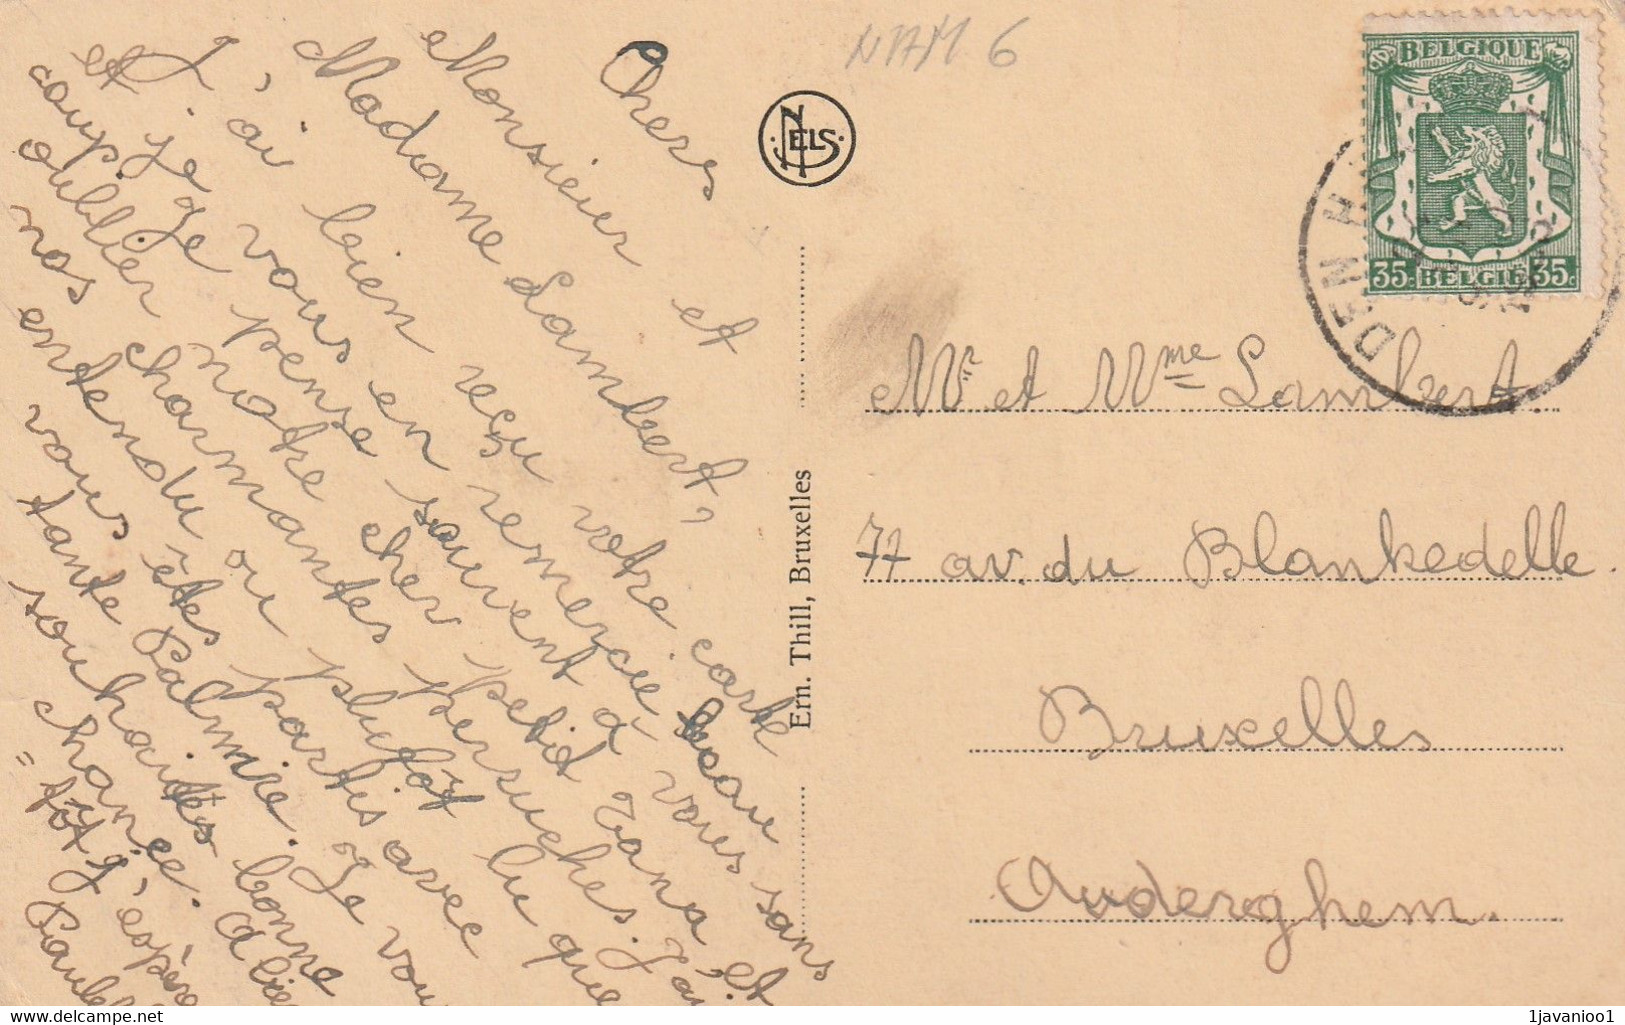 NAM 6
Chers
Monsieur et
Madame Lambert,
J'ai bien reçu votre carte
et je vous en remercie beau
coup. Je pense souvent à vous sans
oublier notre cher petit Zana et
nos charmantes perruches. J'ai
entendu ou plutôt lu que
vous êtes partis avec
tante Palmire. Je vous
souhaites bonne
chance. A bien
= tôt j'espère
Paulette
NELS
Ern. Thill, Bruxelles
BELGIQUE
35c BELGIE 35c
DEN HAAN
Mr et Mme Lambert.
77 av. du Blankedelle.
Bruxelles
Auderghem.
1javanioo1